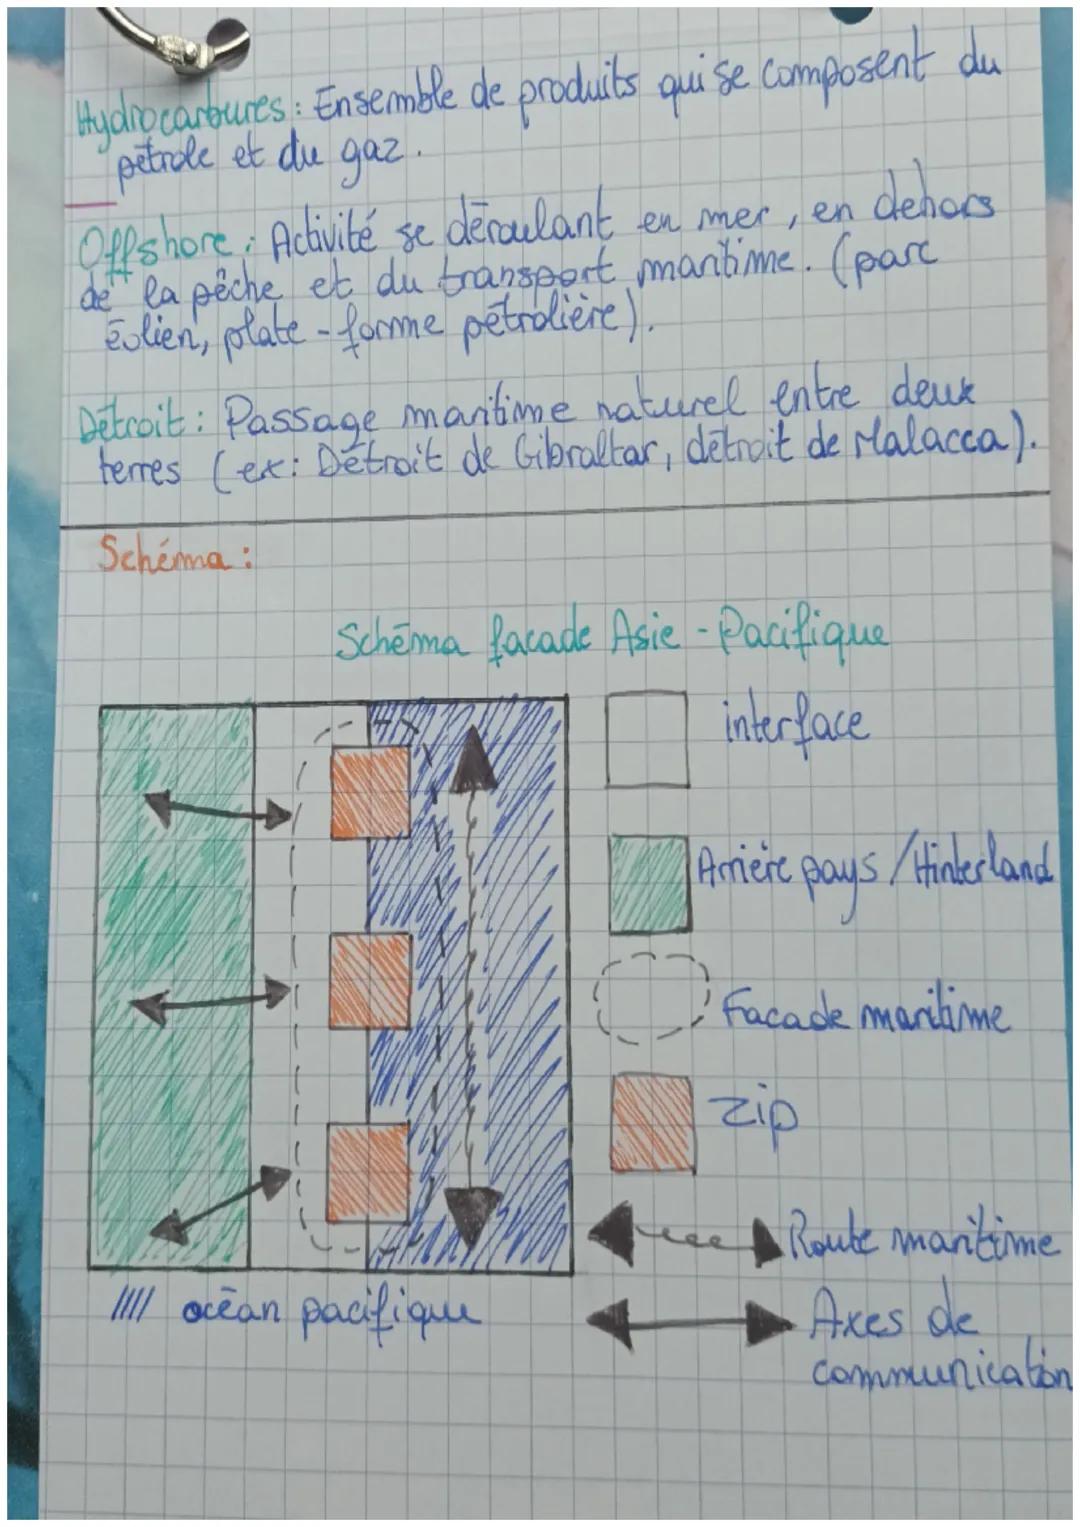 Hydrocarbures : Ensemble de produits qui se composent du
pétrole et du gaz.
Offshore : Activité se déroulant en mer, en dehors
de la pêche et du transport maritime. (parc
éolien, plate-forme pétrolière).
Détroit : Passage maritime naturel entre deux
terres (ex: Détroit de Gibraltar, détroit de Malacca).
Schéma :
Schéma facade Asie - Pacifique
interface
Arrière pays / Hinterland
Facade maritime
Zip
Route maritime
//// océan pacifique
Axes de
communication